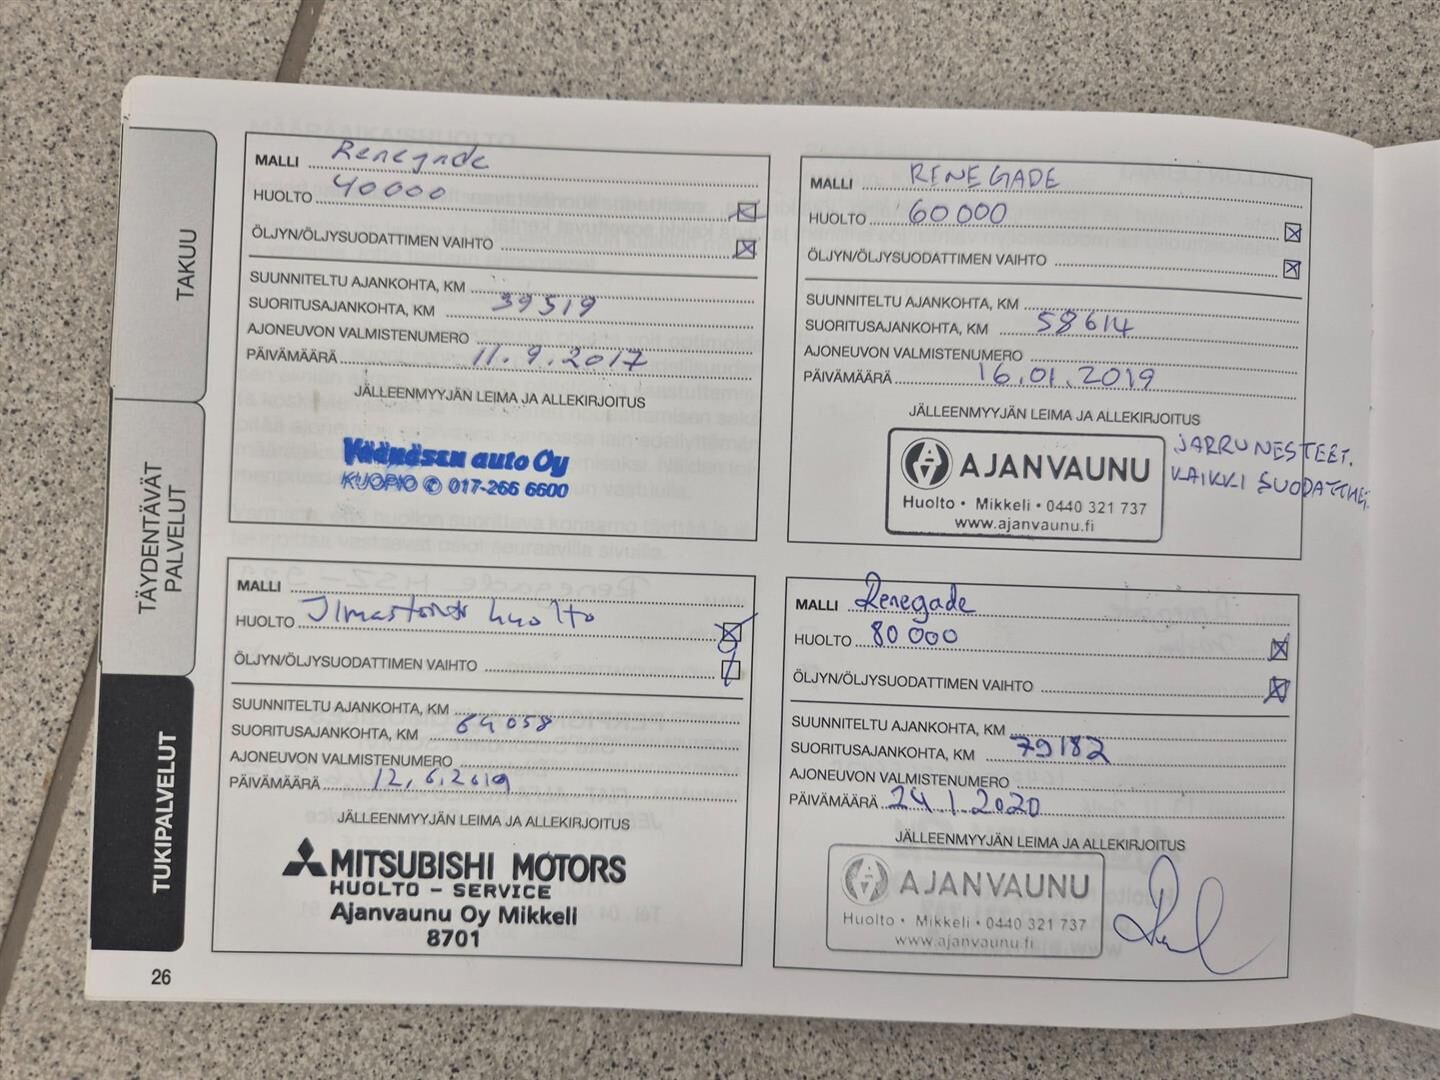 TAKUU
TÄYDENTÄVÄT
PALVELUT
TUKIPALVELUT
26
MALLI Renegade
HUOLTO 40000
ÖLJYN/ÖLJYSUODATTIMEN VAIHTO
SUUNNITELTU AJANKOHTA, KM
SUORITUSAJANKOHTA, KM 39519
AJONEUVON VALMISTENUMERO
PÄIVÄMÄÄRÄ 11.9.2017
JÄLLEENMYYJÄN LEIMA JA ALLEKIRJOITUS
Väänäsen auto Oy
KUOPIO ✆ 017-266 6600
MALLI RENEGADE
HUOLTO 60000
ÖLJYN/ÖLJYSUODATTIMEN VAIHTO
SUUNNITELTU AJANKOHTA, KM
SUORITUSAJANKOHTA, KM 58614
AJONEUVON VALMISTENUMERO
PÄIVÄMÄÄRÄ 16.01.2019
JÄLLEENMYYJÄN LEIMA JA ALLEKIRJOITUS
AJANVAUNU
Huolto • Mikkeli • 0440 321 737
www.ajanvaunu.fi
JARRUNESTEET.
KAIKKI
MALLI
HUOLTO huolto
ÖLJYN/ÖLJYSUODATTIMEN VAIHTO
SUUNNITELTU AJANKOHTA, KM
SUORITUSAJANKOHTA, KM 64058
AJONEUVON VALMISTENUMERO
PÄIVÄMÄÄRÄ 12.6.2019
JÄLLEENMYYJÄN LEIMA JA ALLEKIRJOITUS
MITSUBISHI MOTORS
HUOLTO - SERVICE
Ajanvaunu Oy Mikkeli
8701
MALLI Renegade
HUOLTO 80000
ÖLJYN/ÖLJYSUODATTIMEN VAIHTO
SUUNNITELTU AJANKOHTA, KM
SUORITUSAJANKOHTA, KM 79182
AJONEUVON VALMISTENUMERO
PÄIVÄMÄÄRÄ 24.1.2020
JÄLLEENMYYJÄN LEIMA JA ALLEKIRJOITUS
AJANVAUNU
Huolto • Mikkeli • 0440 321 737
www.ajanvaunu.fi